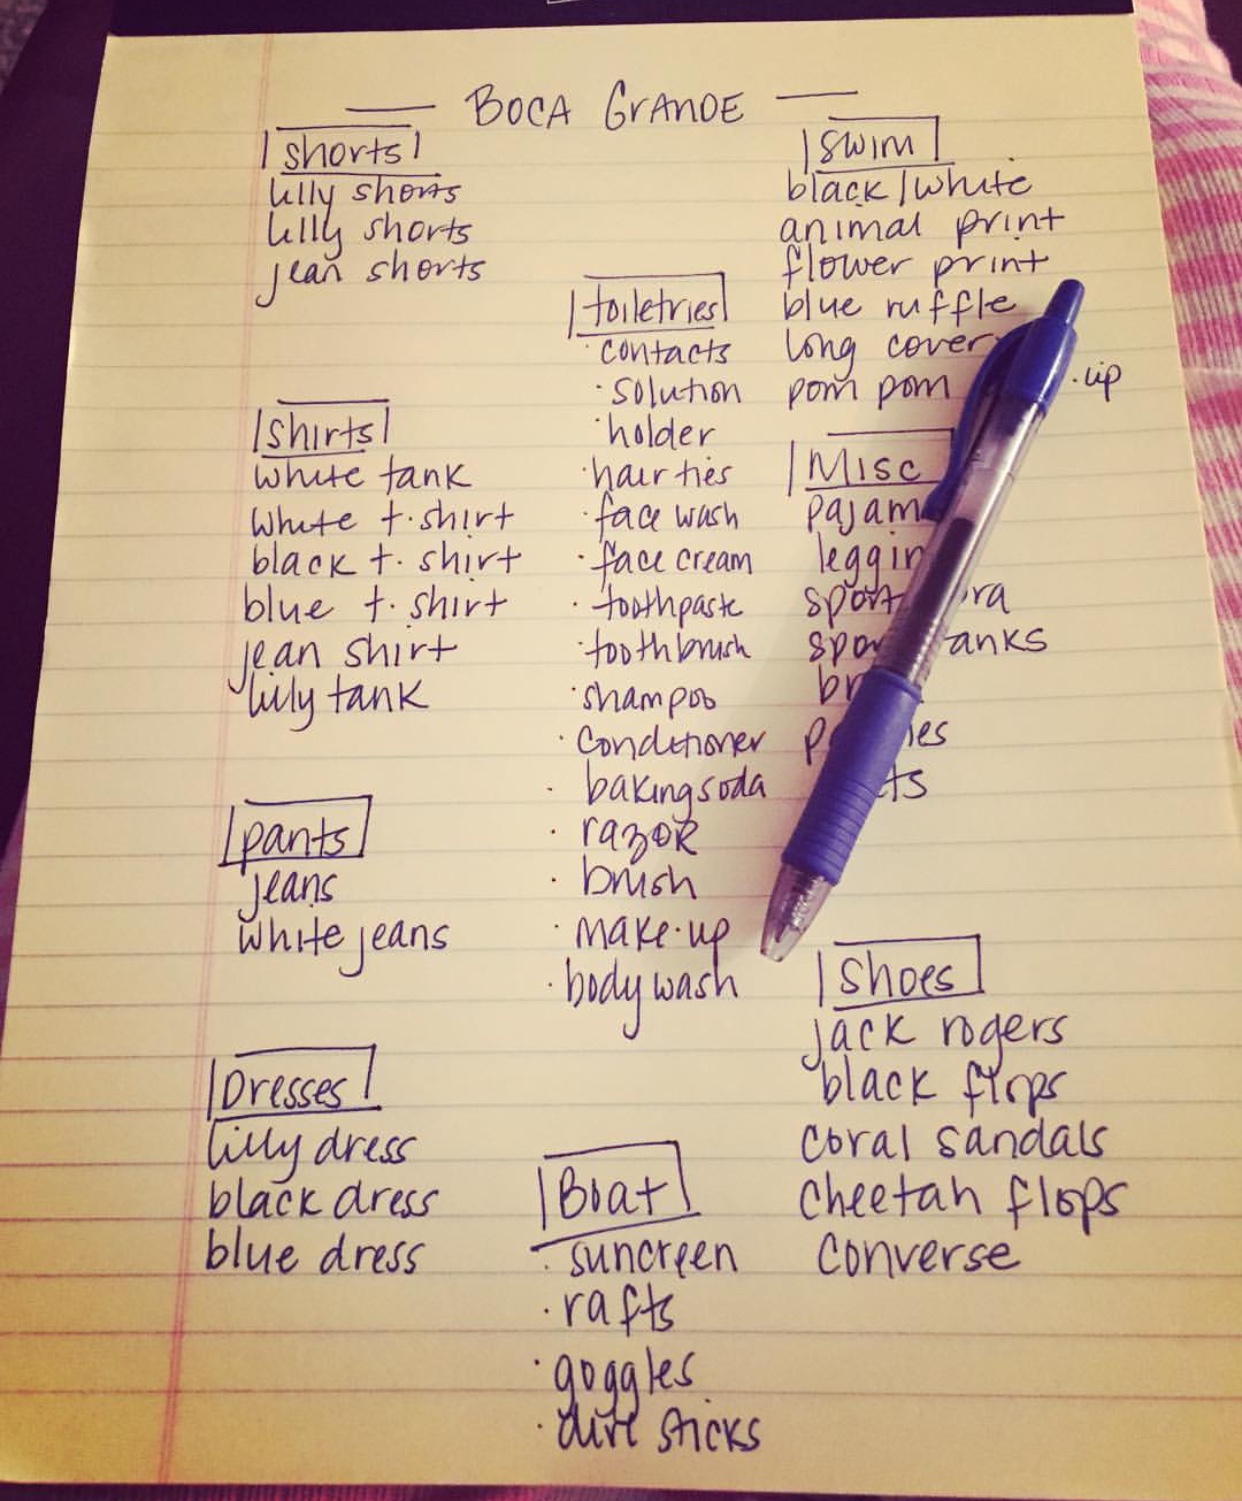 BOCA GRANDE
shorts
lilly shorts
lilly shorts
jean shorts
shirts
white tank
white t.shirt
black t.shirt
blue t.shirt
jean shirt
lilly tank
pants
jeans
white jeans
Dresses
lilly dress
black dress
blue dress
toiletries
· contacts
· solution
· holder
· hair ties
· face wash
· face cream
· toothpaste
· toothbrush
· shampoo
· conditioner
· baking soda
· razor
· brush
· make-up
· body wash
Boat
· suncreen
· rafts
· goggles
· dive sticks
swim
black/white
animal print
flower print
blue ruffle
long cover
pom pom .up
Misc
Shoes
jack rogers
black flops
coral sandals
cheetah flops
converse